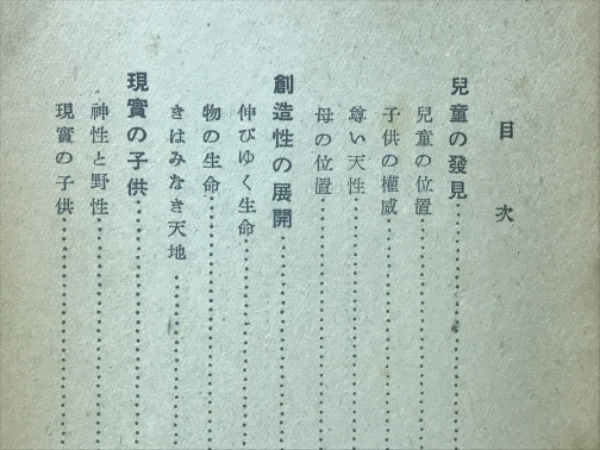 目次
兒童の發見
兒童の位置
子供の權威
尊い天性
母の位置
創造性の展開
伸びゆく生命
物の生命
きはみなき天地
現實の子供
神性と野性
現實の子供